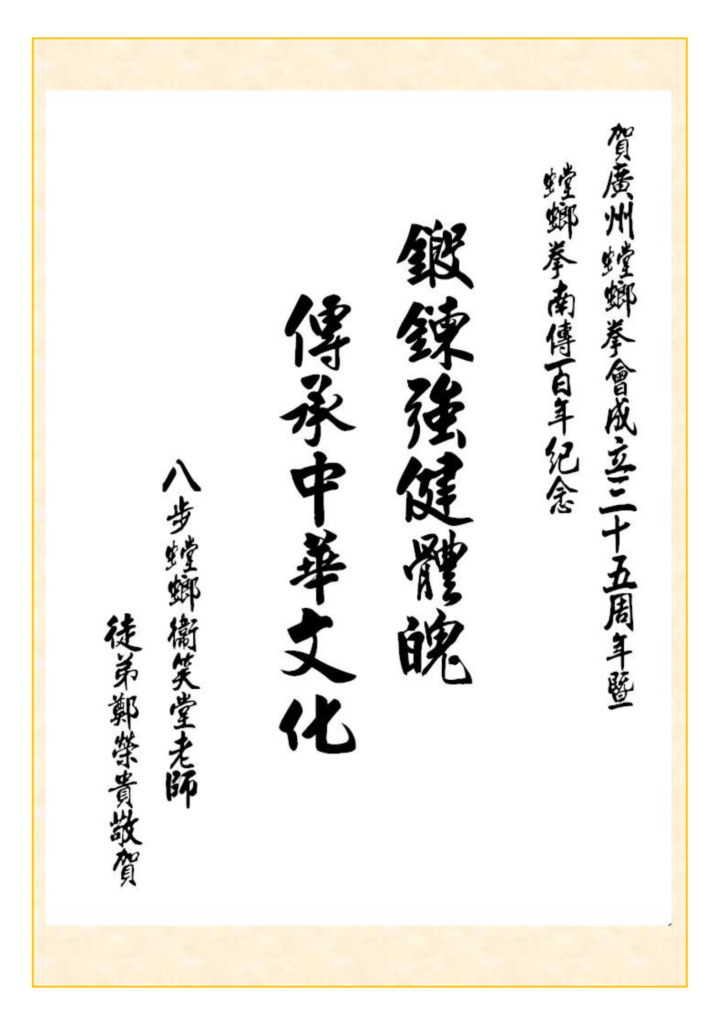 賀廣州螳螂拳會成立三十五周年暨
螳螂拳南傳百年紀念
鍛鍊強健體魄
傳承中華文化
八步螳螂衞笑堂老師
徒弟鄭榮貴敬賀